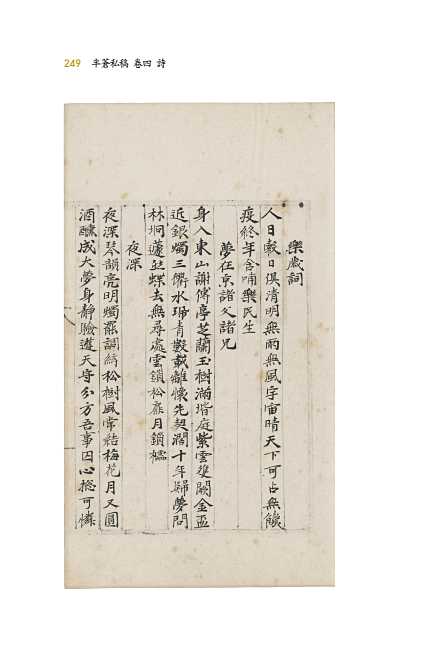 249 半蒼私稿 卷四 詩
樂歲詞
人日穀日俱清明無雨無風宇宙晴天下可占無饑
疫終年含哺樂民生
夢在京諸父諸兄
身入東山謝傅亭芝蘭玉樹滿堦庭紫雲雙闕金盃
近銀燭三衢水珮青數載離懷先契濶十年歸夢問
林坰蘧然蝶去無尋處雲鎖松扉月鎖櫺
夜深
夜深琴韻亮明燭罷調絃松樹風常結梅花月又圓
酒醺成大夢身靜驗遵天守分方吾事因心終可憐